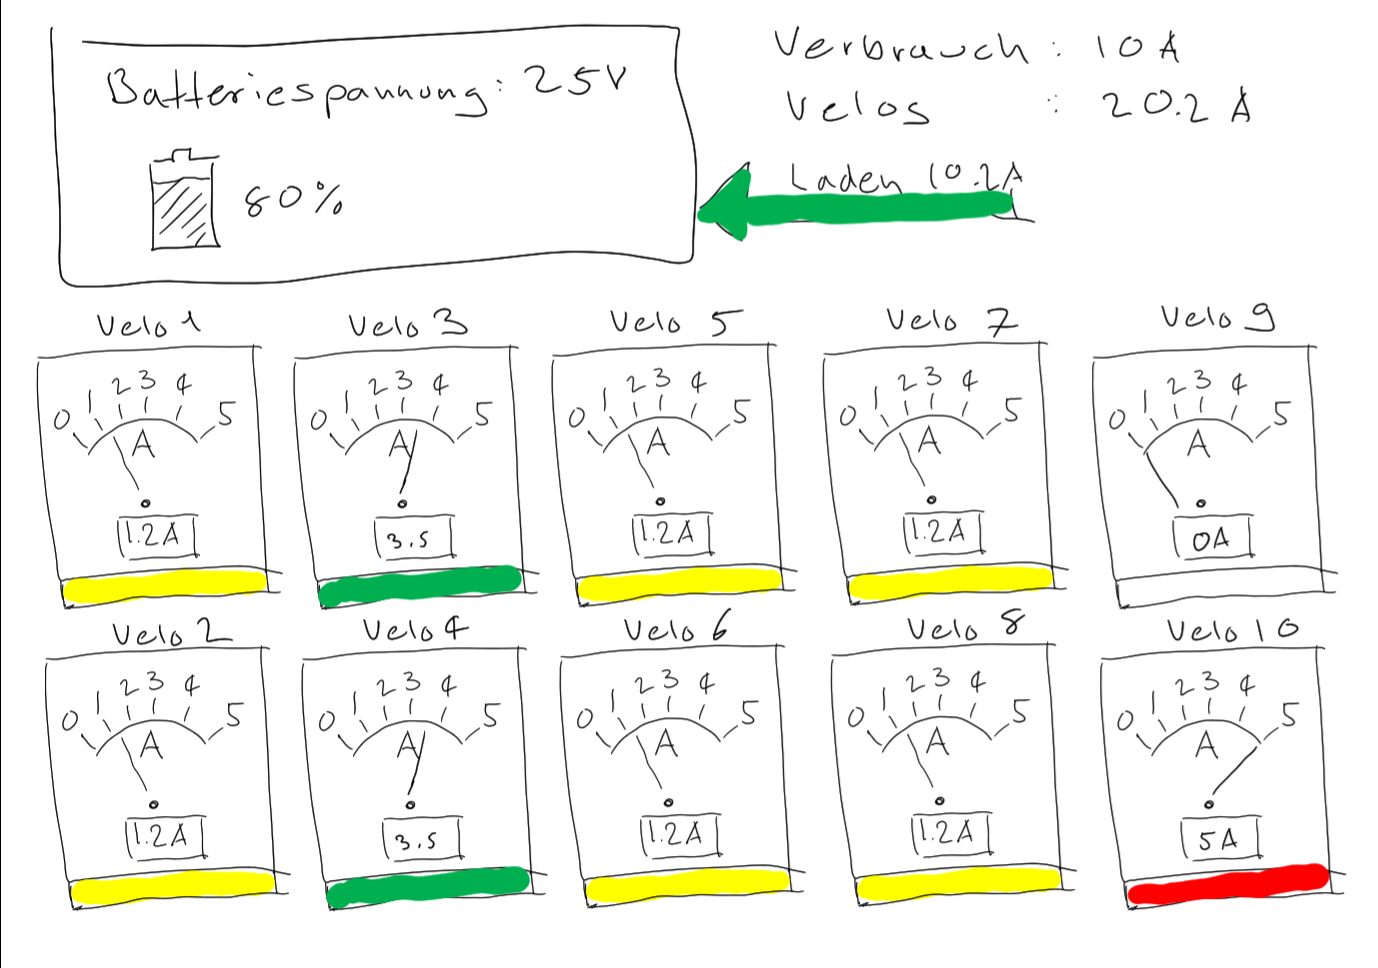 Batteriespannung: 25V
80%
Verbrauch: 10A
Velos : 20.2A
Laden 10.2A
Velo 1
0 1 2 3 4 5
A
1.2A
Velo 3
0 1 2 3 4 5
A
3.5
Velo 5
0 1 2 3 4 5
A
1.2A
Velo 7
0 1 2 3 4 5
A
1.2A
Velo 9
0 1 2 3 4 5
A
0A
Velo 2
0 1 2 3 4 5
A
1.2A
Velo 4
0 1 2 3 4 5
A
3.5
Velo 6
0 1 2 3 4 5
A
1.2A
Velo 8
0 1 2 3 4 5
A
1.2A
Velo 10
0 1 2 3 4 5
A
5A